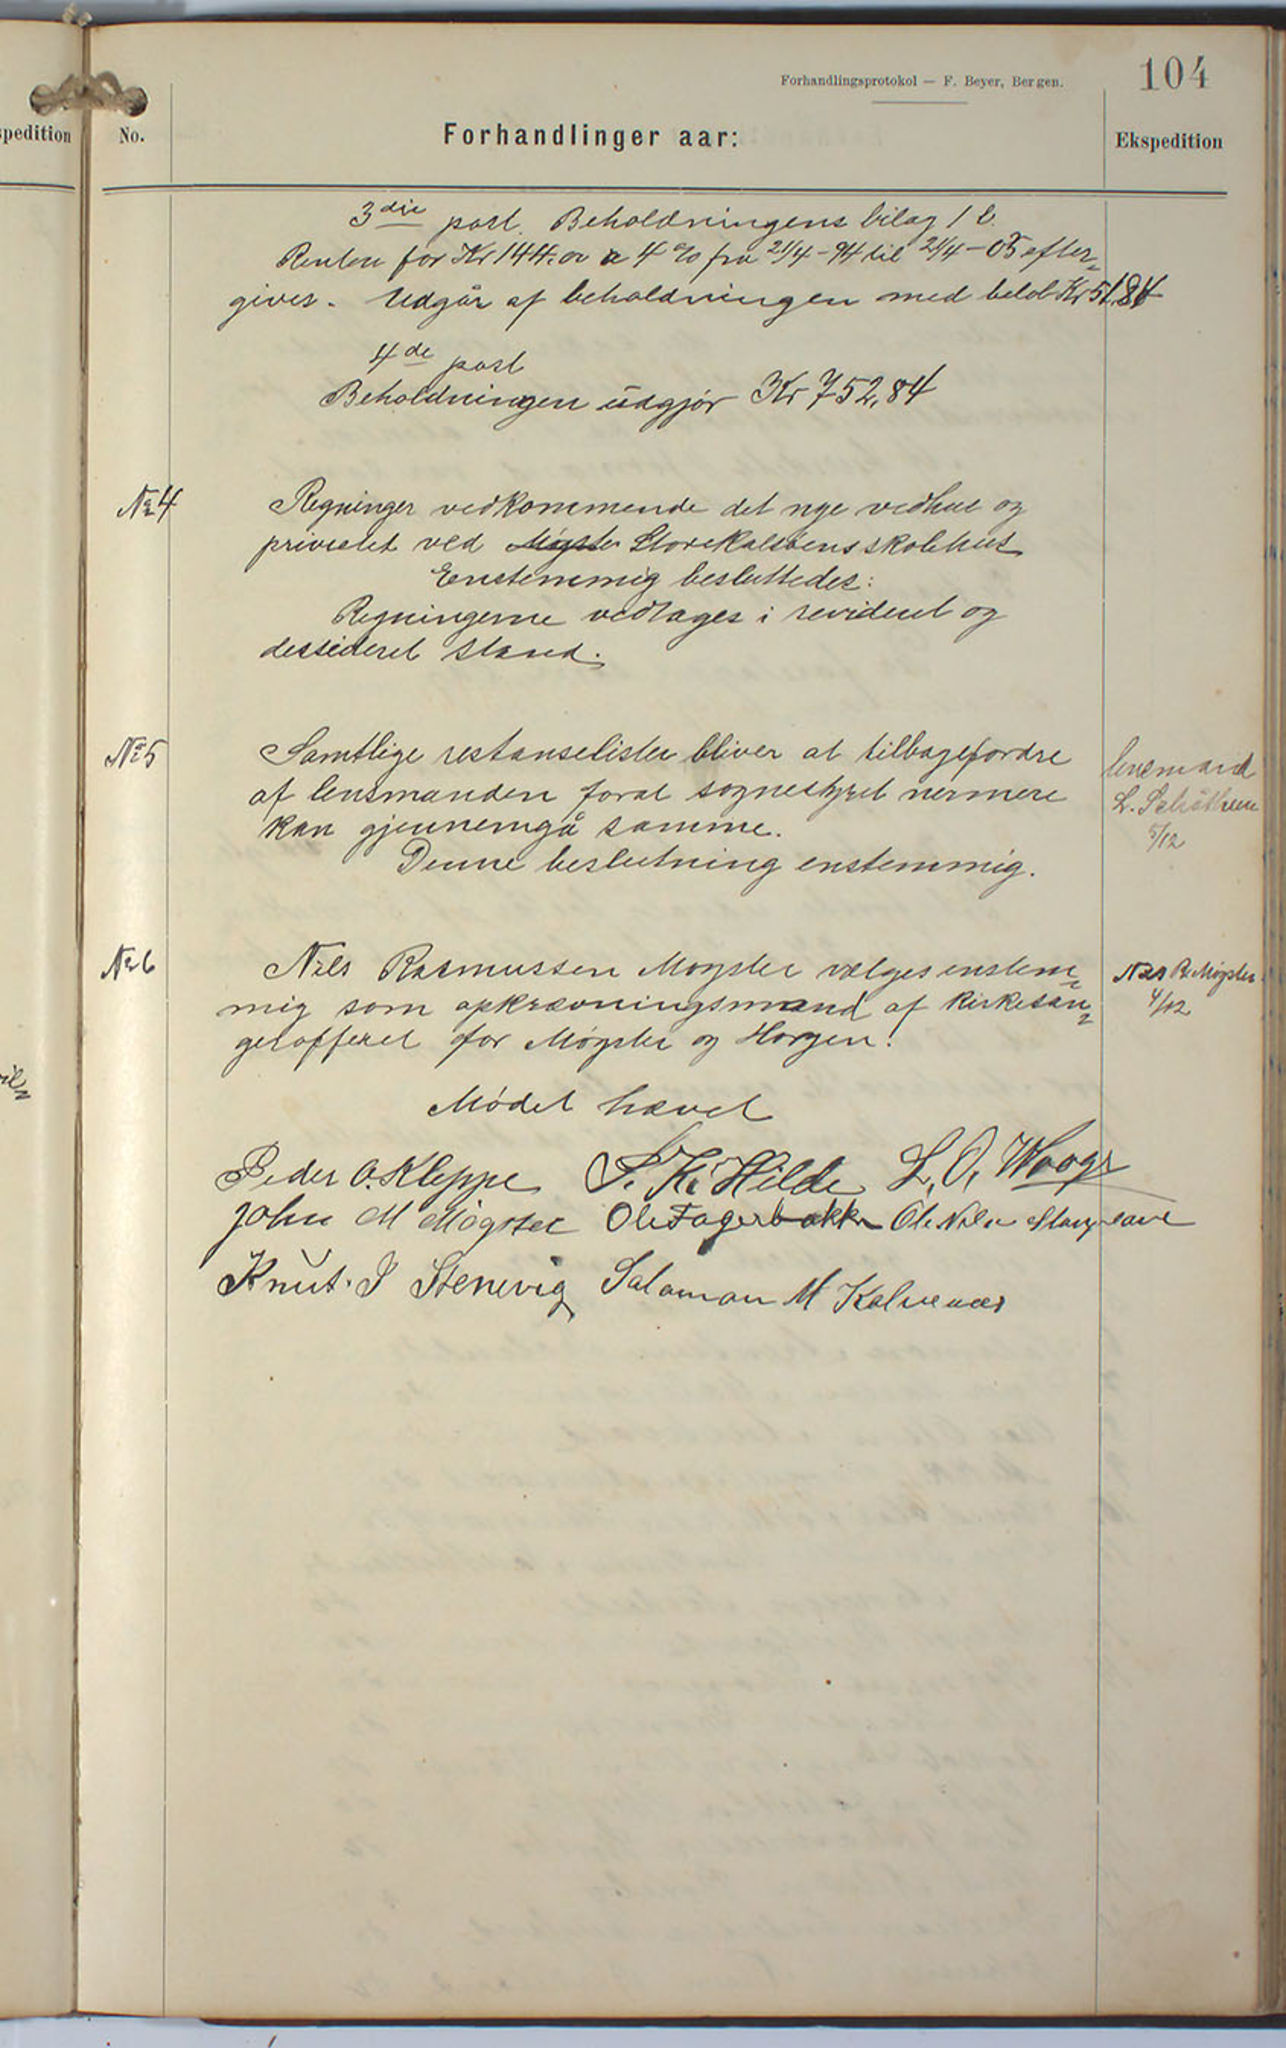 Forhandlingsprotokol — F. Beyer, Bergen.
104
spedition
No.
Forhandlinger aar:
Ekspedition
3die post. Beholdningens bilag 1 b.
Renten for Kr 144.00 a 4 % fra 21/4-94 til 21/4-05 efter=
gives. Udgår af beholdningen med beløb Kr 51,84
4de post
Beholdningen udgjør Kr 752,84
No 4
Regninger vedkommende det nye vedhus og
privetet ved Møgster Storekalsøens skolehus
Enstemmig besluttedes:
Regningerne vedtages i revideret og
dessideret stand.
No 5
Samtlige restanselister bliver at tilbagefordre
af lensmanden forat sognestyret nermere
kan gjennemgå samme.
Denne beslutning enstemmig.
lensmand
L. 
5/12
No 6
Nils Rasmussen Møgster velges enstem=
mig som opkrævningsmand af kirkesan=
gerofferet for Møgster og Horgen.
Nils R. Møgster
4/12
Mødet hævet
Peder O. Kleppe S. K. Hilde L. O.
John M Møgster Ole Fagerbakke Ole Nilsen
Knut J Stenevig Salamon M Kalvenes